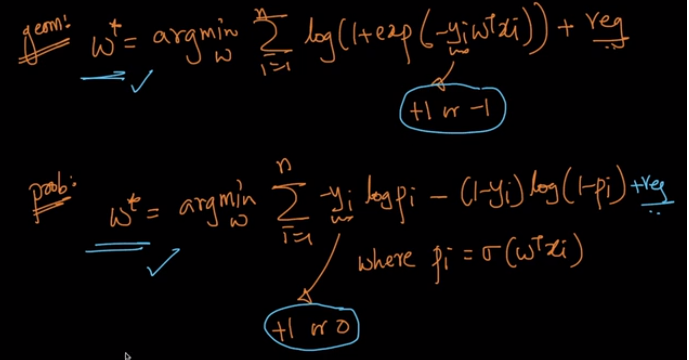 geom: w* = argmin_w Σ_{i=1}^{n} log(1+exp(-yi wᵀxi)) + reg
+1 or -1
prob: w* = argmin_w Σ_{i=1}^{n} -yi log pi - (1-yi) log(1-pi) + reg
where pi = σ(wᵀxi)
+1 or 0